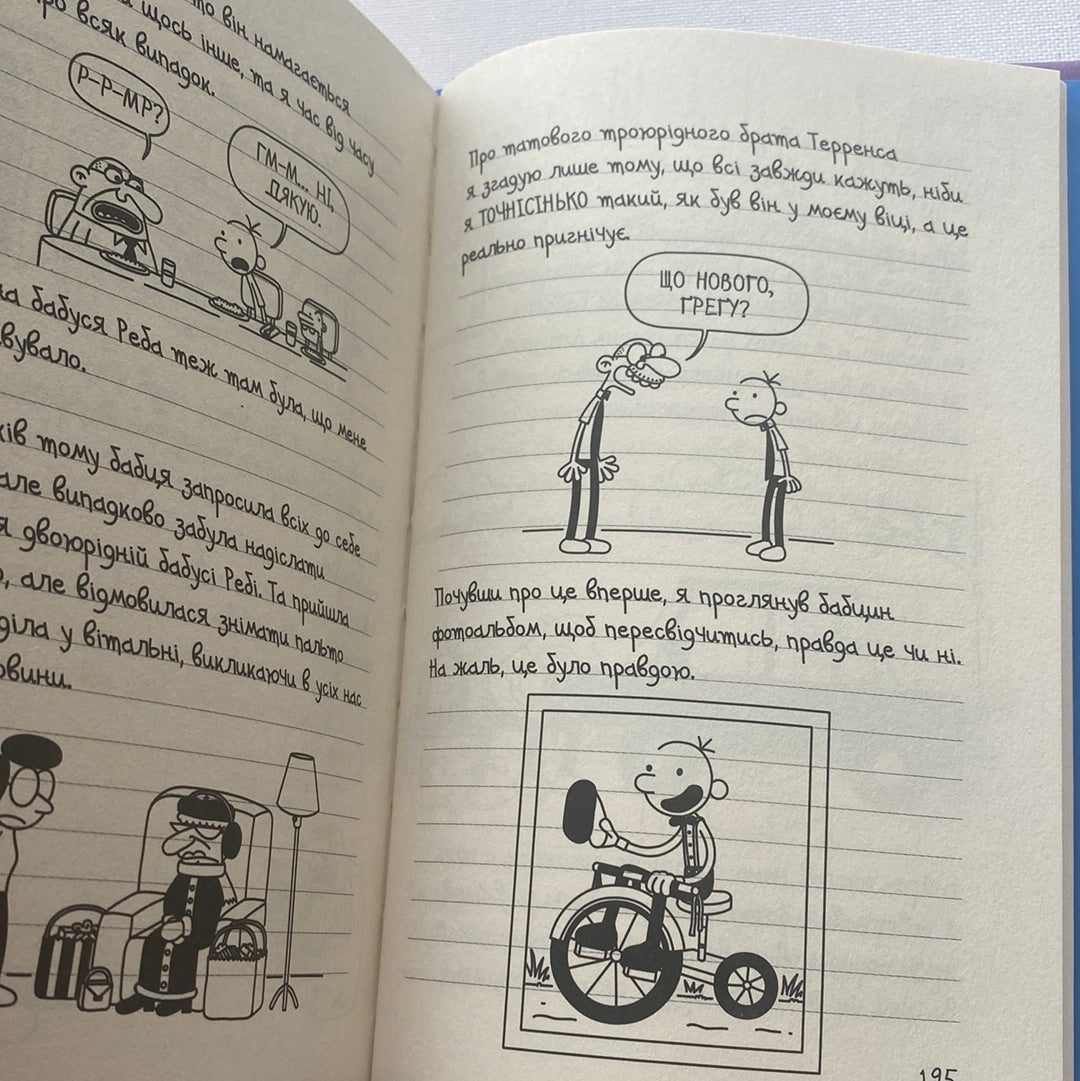 то він намагається
щось інше, та я час від часу
про всяк випадок.
Р-Р-МР?
ГМ-М... НІ,
ДЯКУЮ.
бабуся Реба теж там була, що мене
тому бабця запросила всіх до себе
але випадково забула надіслати
двоюрідній бабусі Ребі. Та прийшла
але відмовилася знімати пальто
у вітальні, викликаючи в усіх нас
Про татового троюрідного брата Терренса
я згадую лише тому, що всі завжди кажуть, ніби
я ТОЧНІСІНЬКО такий, як був він у моєму віці, а це
реально пригнічує.
ЩО НОВОГО,
ҐРЕҐУ?
Почувши про це вперше, я проглянув бабцин
фотоальбом, щоб пересвідчитись, правда це чи ні.
На жаль, це було правдою.
195